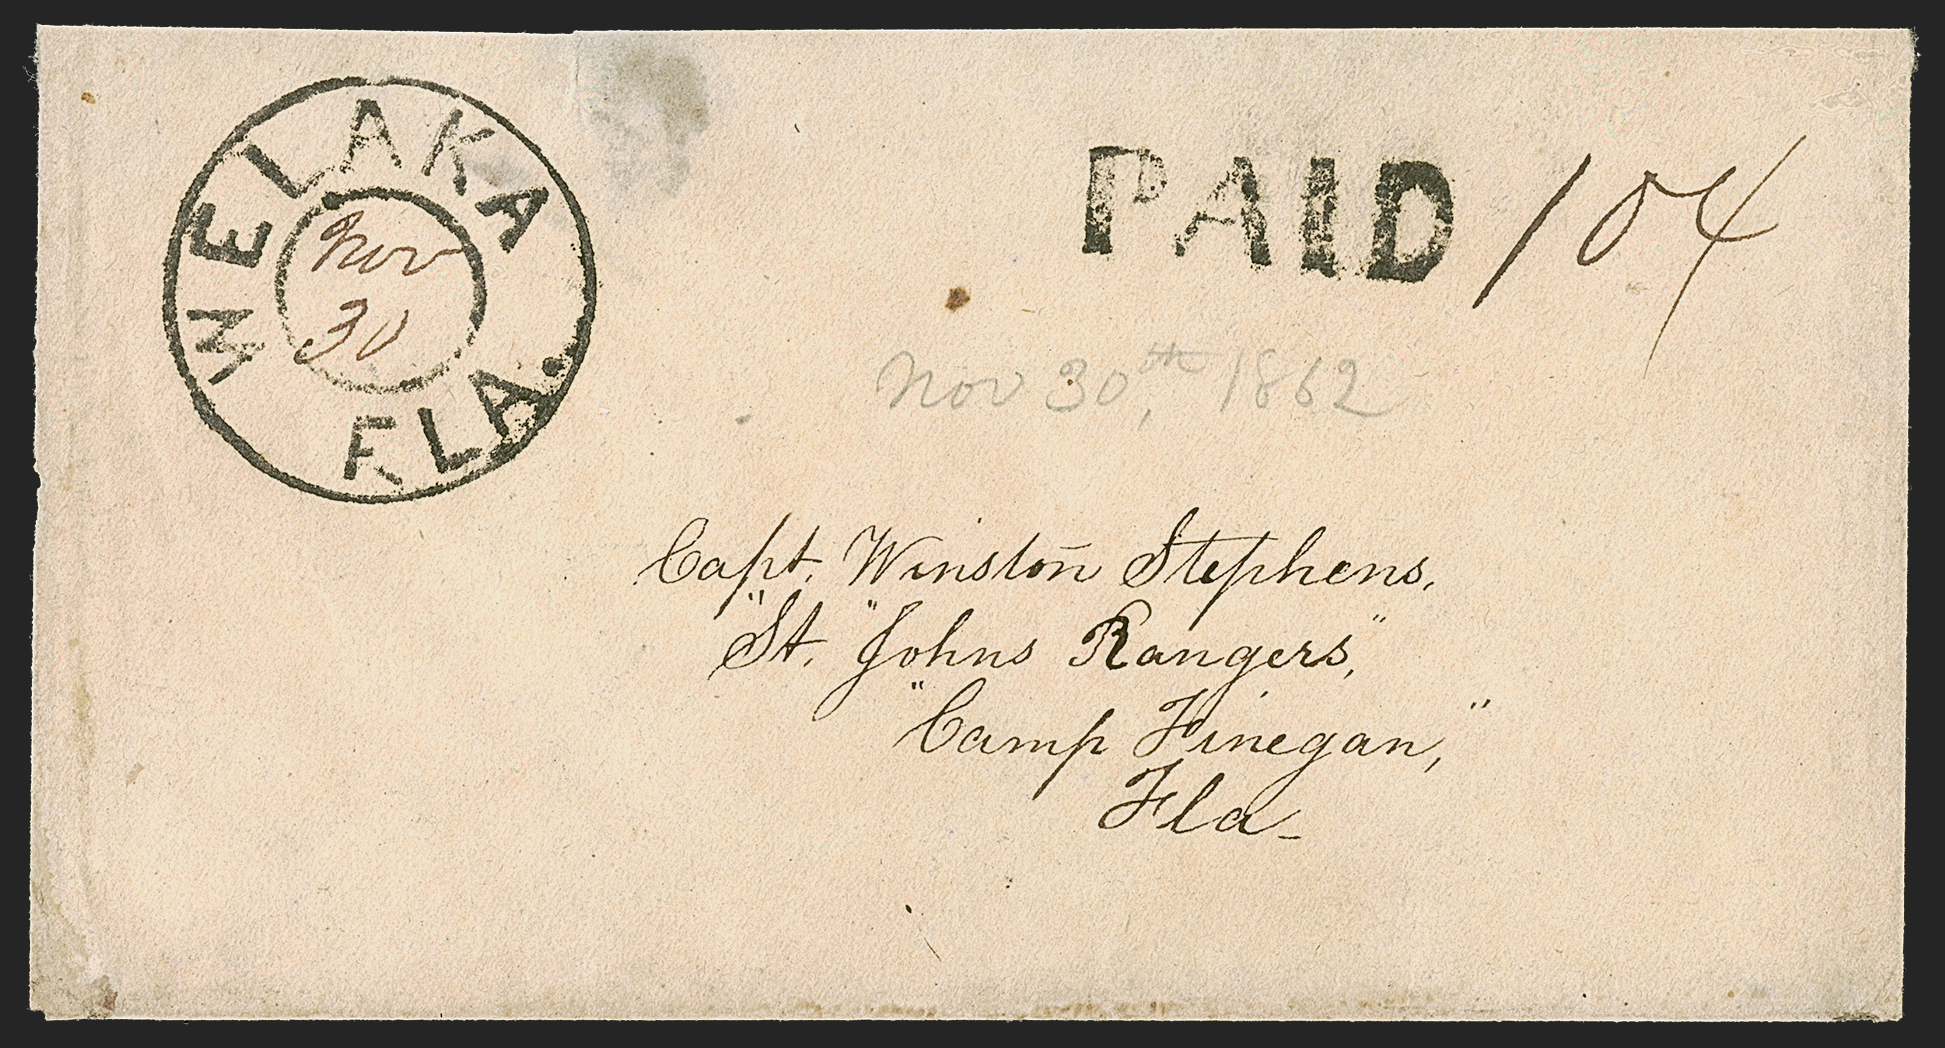 WELAKA
Nov
30
FLA.
PAID 10¢
Nov 30th, 1862
Capt. Winston Stephens,
"St. "Johns Rangers,"
"Camp Finegan,"
Fla-